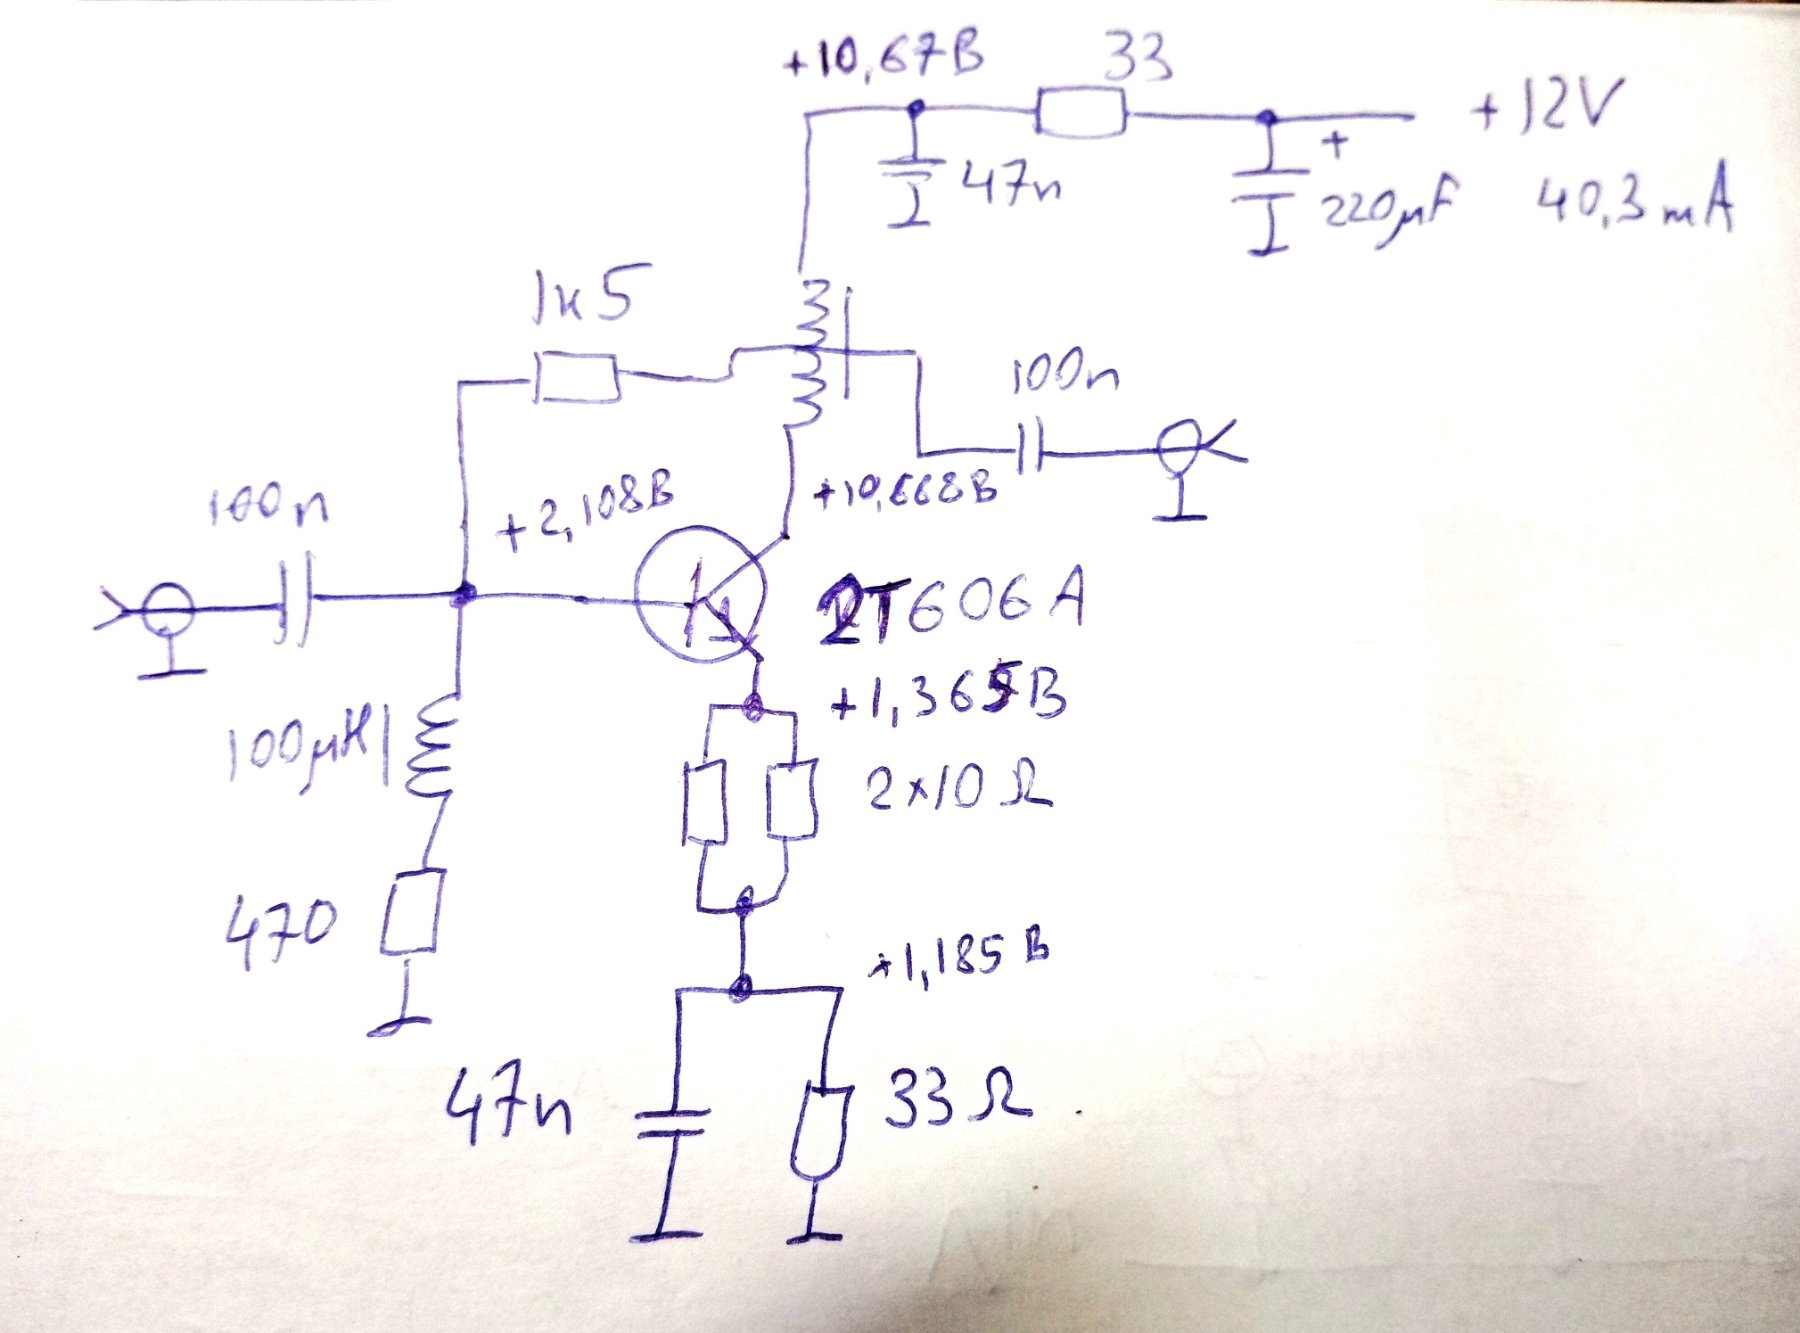 +10,67В
33
+12V
47n
+
220µF
40,3mA
1к5
100n
+10,668В
100n
+2,108В
2Т606А
+1,365В
100µH
2×10 Ω
470
+1,185 В
47n
33 Ω